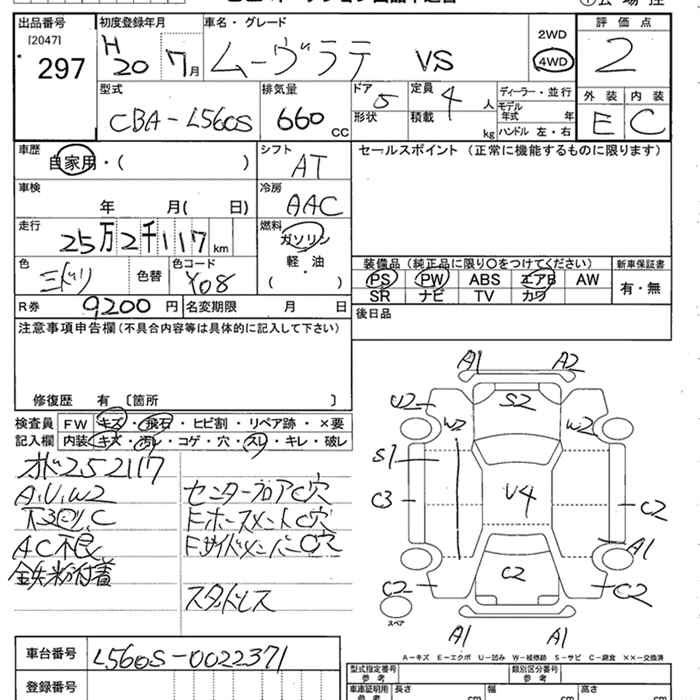 出品番号 初度登録年月 車名・グレード 評価点
[2047]
297 H20 7月 ムーヴラテ VS 2WD 4WD 2
型式 排気量 ドア 定員 ディーラー・並行 外装 内装
CBA-L560S 660cc 5 4人 モデル年式 年 E C
形状 積載 kg ハンドル 左・右
車歴 シフト セールスポイント(正常に機能するものに限ります)
自家用・( ) AT
車検 冷房
年 月( 日) AAC
走行 燃料
25万2千117km ガソリン
色 色替 色コード 軽・油 装備品(純正品に限り○をつけてください) 新車保証書
ミドリ Y08 ( ) PS PW ABS エアB AW 有・無
R券 9200円 名変期限 月 日 SR ナビ TV カワ
注意事項申告欄(不具合内容等は具体的に記入して下さい) 後日品
修復歴 有〔箇所 〕
検査員 FW キズ・飛石・ヒビ割・リペア跡・×要
記入欄 内装 キズ・汚レ・コゲ・穴・スレ・キレ・破レ
オド252117
A.U.W2 センターフロアC穴
下廻り.C Fホースメント C穴
AC不良 Fサイドメンバー C穴
鉄粉付着
スタットレス
A1 A2
U2 S2
W2 W2
S1
C3 V4 C2
A1
C2 C2 C2
スペア
A1 A1
A-キズ E-エクボ U-凹み W-補修跡 S-サビ C-腐食 ××-交換済
車台番号 L560S-0022371
登録番号
型式指定番号 参考 類別区分番号 参考
車庫証明用 参考 長さ cm 幅 cm 高さ cm